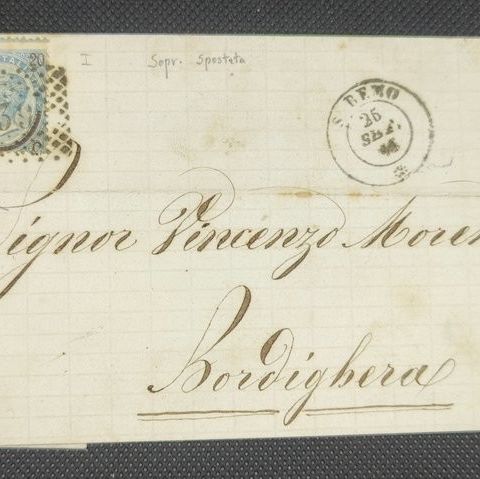 20
I Sopr. Spostata
S. REMO
25
SET.
Signor Vincenzo Moren
Bordighera